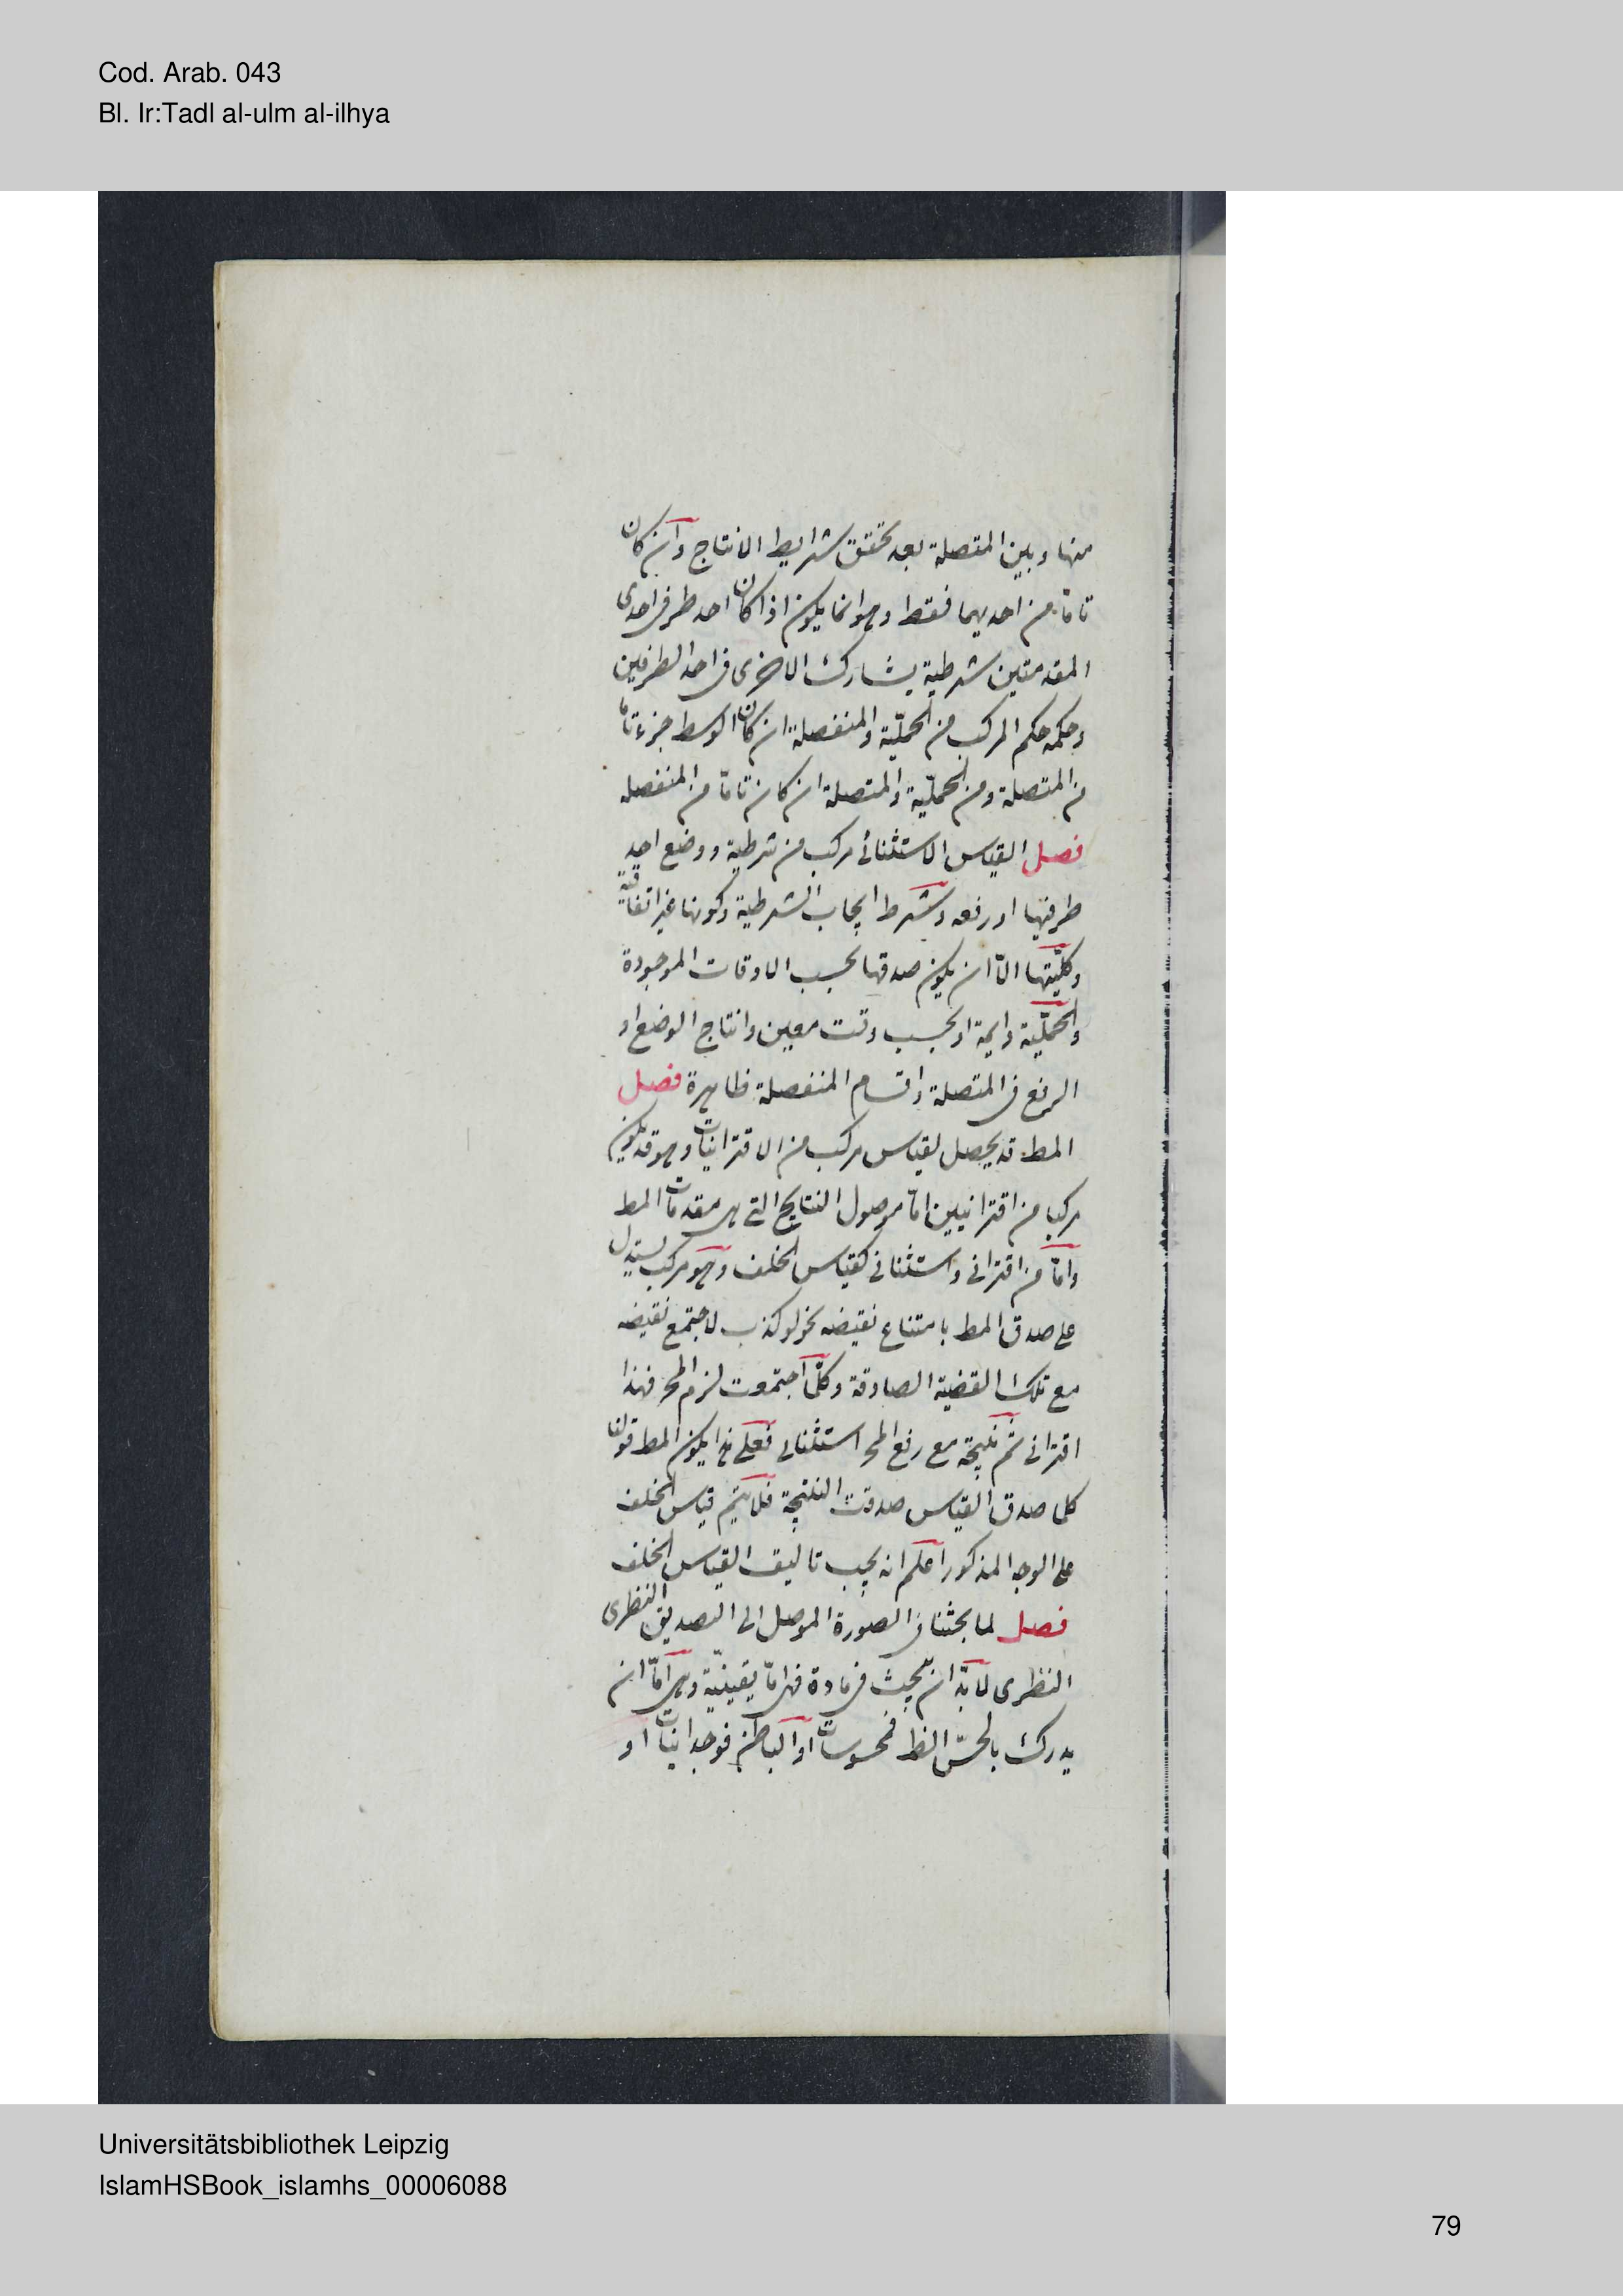 Cod. Arab. 043
Bl. Ir:Tadl al-ulm al-ilhya
منها وبين المتصلة بعد تحقق شرايط الانتاج وان كان
تاما من احديهما فقط وهو انما يكون اذا كان احد طرفى احدى
المقدمتين شرطية يشارك الاخرى فى احد الطرفين
وحكمه حكم المركب من الحملية والمنفصلة ان كان الوسط جزء تاما
من المتصلة ومن الحملية والمتصلة ان كان تاما من المنفصله
فصل القياس الاستثنائى مركب من شرطية ووضع احد
طرفيها او رفعه وشرط ايجاب الشرطية وكونها غير اتفاقية
وكليتها الا ان يكون صدقها بحسب الاوقات الموجودة
والحملية دايمة او بحسب وقت معين وانتاج الوضع او
الرفع فى المتصلة واقسام المنفصلة ظاهرة فصل
المط قد يحصل لقياس مركب من الاقترانيات وهو قد يكون
مركب من اقترانيين اما موصول النتايج التى هى مقدمات المط
واما من اقترانى واستثنائى كقياس الخلف وهو مركب يستدل
على صدق المط بامتناع نقيضه نحو لو كذب لاجتمع نقيضه
مع تلك القضية الصادقة وكلما اجتمعت لزم المح فهذا
اقترانى ثم نتيجة مع رفع المح استثنائى فعلى هذا يكون المط قولنا
كلما صدق القياس صدقت النتيجة فلا يتم قياس الخلف
على الوجه المذكور اعلم انه يجب تاليف القياس الخلف
فصل لما بحثنا فى الصورة الموصل الى التصديق النظرى
النظرى لابد ان يبحث فى مادة فهى اما يقينية وهى اما ان
يدرك بالحس الظ فمحسوسات او الباطن فوجدانيات او
Universitätsbibliothek Leipzig
IslamHSBook_islamhs_00006088
79